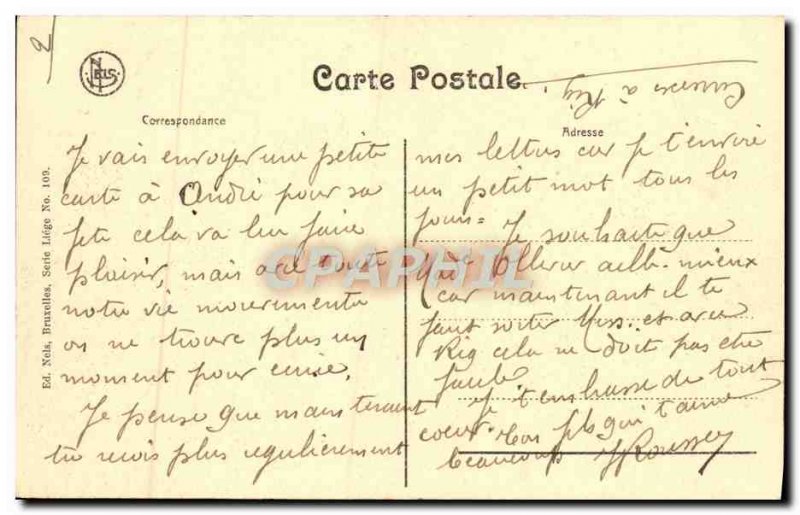 2
NELS
Carte Postale
Caresses à Riq
Correspondance
Adresse
Ed. Nels, Bruxelles, Serie Liége No. 109.
Je vais envoyer une petite
carte à André pour sa
fête cela va lui faire
plaisir, mais avec toute
notre vie mouvementée
on ne trouve plus un
moment pour écrire.
Je pense que maintenant
tu reçois plus régulièrement
mes lettres car je t'envoie
un petit mot tous les
jours = Je souhaite que
Mde Ollivier aille mieux
car maintenant il te
faut sortir et avec
Riq cela ne doit pas être
facile
Je t'embrasse de tout
coeur. Ton fils qui t'aime
beaucoup JRoussey
CPAPHIL